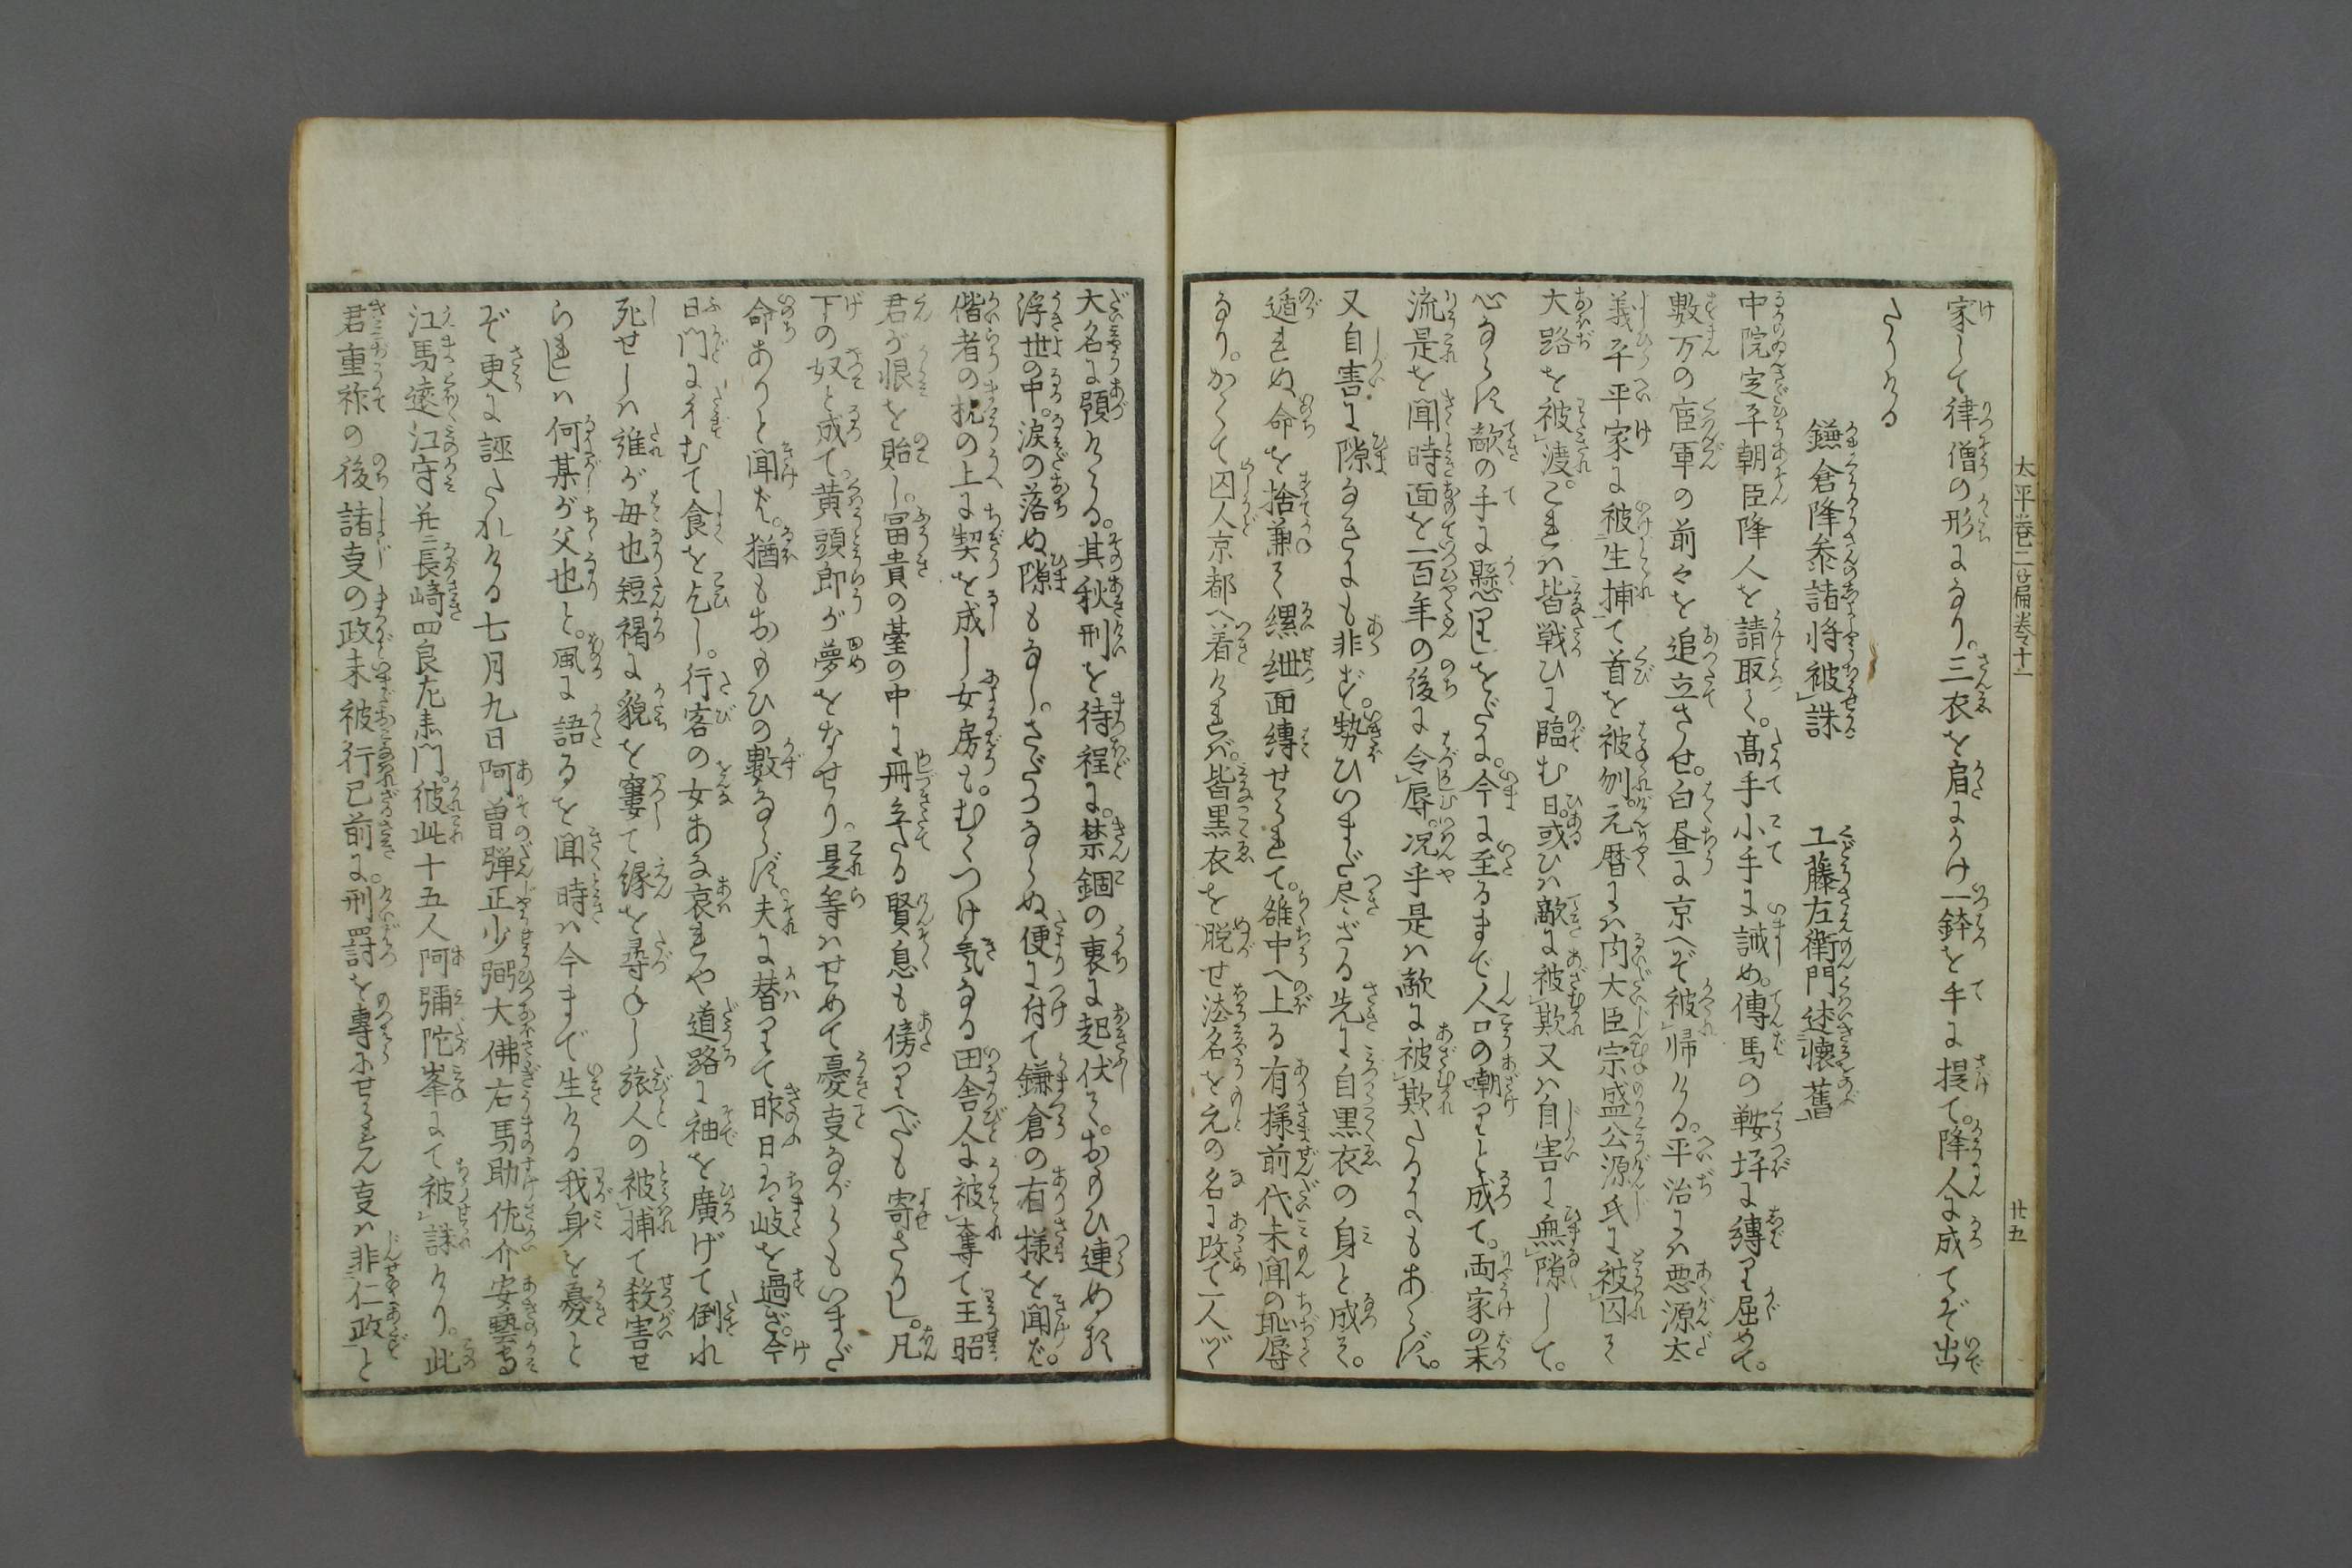 太平巻二篇巻十一
廿五
家して律僧の形になり。三衣を肩にかけ一鉢を手に提て。降人に成てぞ出
たりける
鎌倉降参諸将被誅　工藤左衛門述懐舊
中院定平朝臣降人を請取て。高手小手に誡め。傳馬の鞍坪に縛り屈めて。
数万の官軍の前々を追立させ。白昼に京へぞ被帰ける。平治には悪源太
義平平家に被生捕て首を被刎。元暦には内大臣宗盛公源氏に被囚て
大路を被渡。これは皆戦ひに臨む日。或ひは敵に被欺又は自害に無隙して。
心ならず敵の手に懸りしをだに。今に至るまで人口の嘲りと成て。両家の末
流是を聞時面を一百年の後に令辱。况乎是は敵に被欺たるにもあらず。
又自害に隙なきにも非ず。勢ひいまだ尽ざる先に自黒衣の身と成て。
遁れぬ命を捨兼て縲紲面縛せられて。雒中へ上る有様前代未聞の恥辱
なり。かくて囚人京都へ着ければ。皆黒衣を脱せ法名を元の名に改て一人づゝ
大名に預けらる。其秋刑を待程に。禁錮の裏に起伏て。おもひ連ぬる
浮世の中。涙の落ぬ隙もなし。さだかならぬ便に付て鎌倉の有様を聞ば。
偕老の枕の上に契を成し女房も。むくつけ気なる田舎人に被奪て王昭
君が恨を貽し。富貴の臺の中に冊立たる賢息も傍りへだも寄ざりし。凡
下の奴と成て。黄頭郎が夢をなせり。是等はせめて憂事ながらもいまだ
命ありと聞ば。猶もおもひの数ならず。夫に替りて昨日は岐を過ぎ。今
日門にイむて食を乞し。行客の女あな哀れや道路に袖を廣げて倒れ
死せしは誰が母也短褐に貌を窶て縁を尋ねし旅人の被捕て殺害せ
られしは何某が父也と。風に語るを聞時は今まで生ける我身を憂と
ぞ更に誣たれける七月九日阿曽弾正少弼大佛右馬助佐介安藝守
江馬遠江守并ニ長﨑四良左衛門。彼此十五人阿彌陀峯にて被誅けり。此
君重祚の後諸事の政未被行已前に。刑罸を専にせられん事は非仁政と